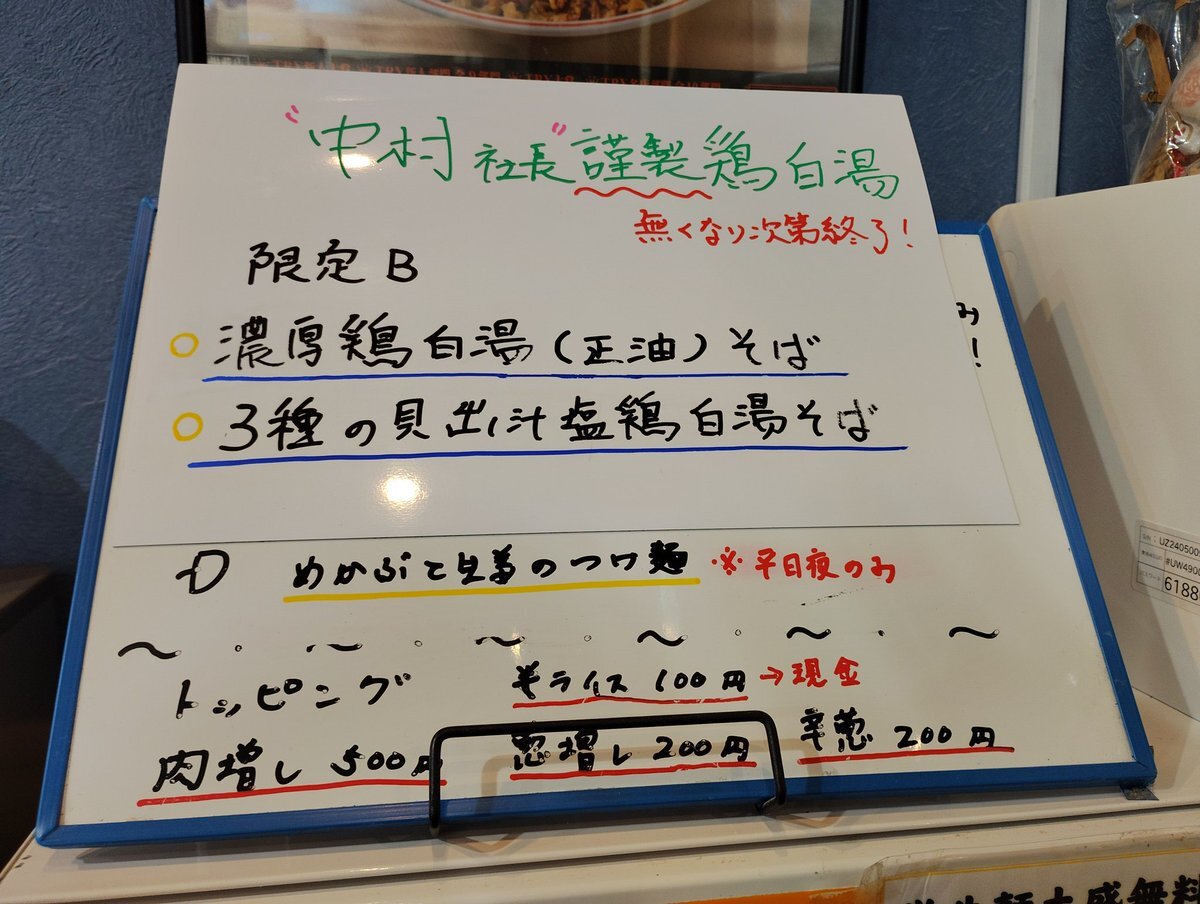 "中村社長"謹製鶏白湯
無くなり次第終了!
限定 B
○ 濃厚鶏白湯(正油)そば
○ 3種の貝出汁塩鶏白湯そば
み
!
D めかぶと生姜のつけ麺 ※平日夜のみ
〜・〜・〜・〜・〜・〜
トッピング 半ライス 100円→現金
肉増し 500円 葱増し 200円 辛葱 200円
UZ240500
#UW4900
6188